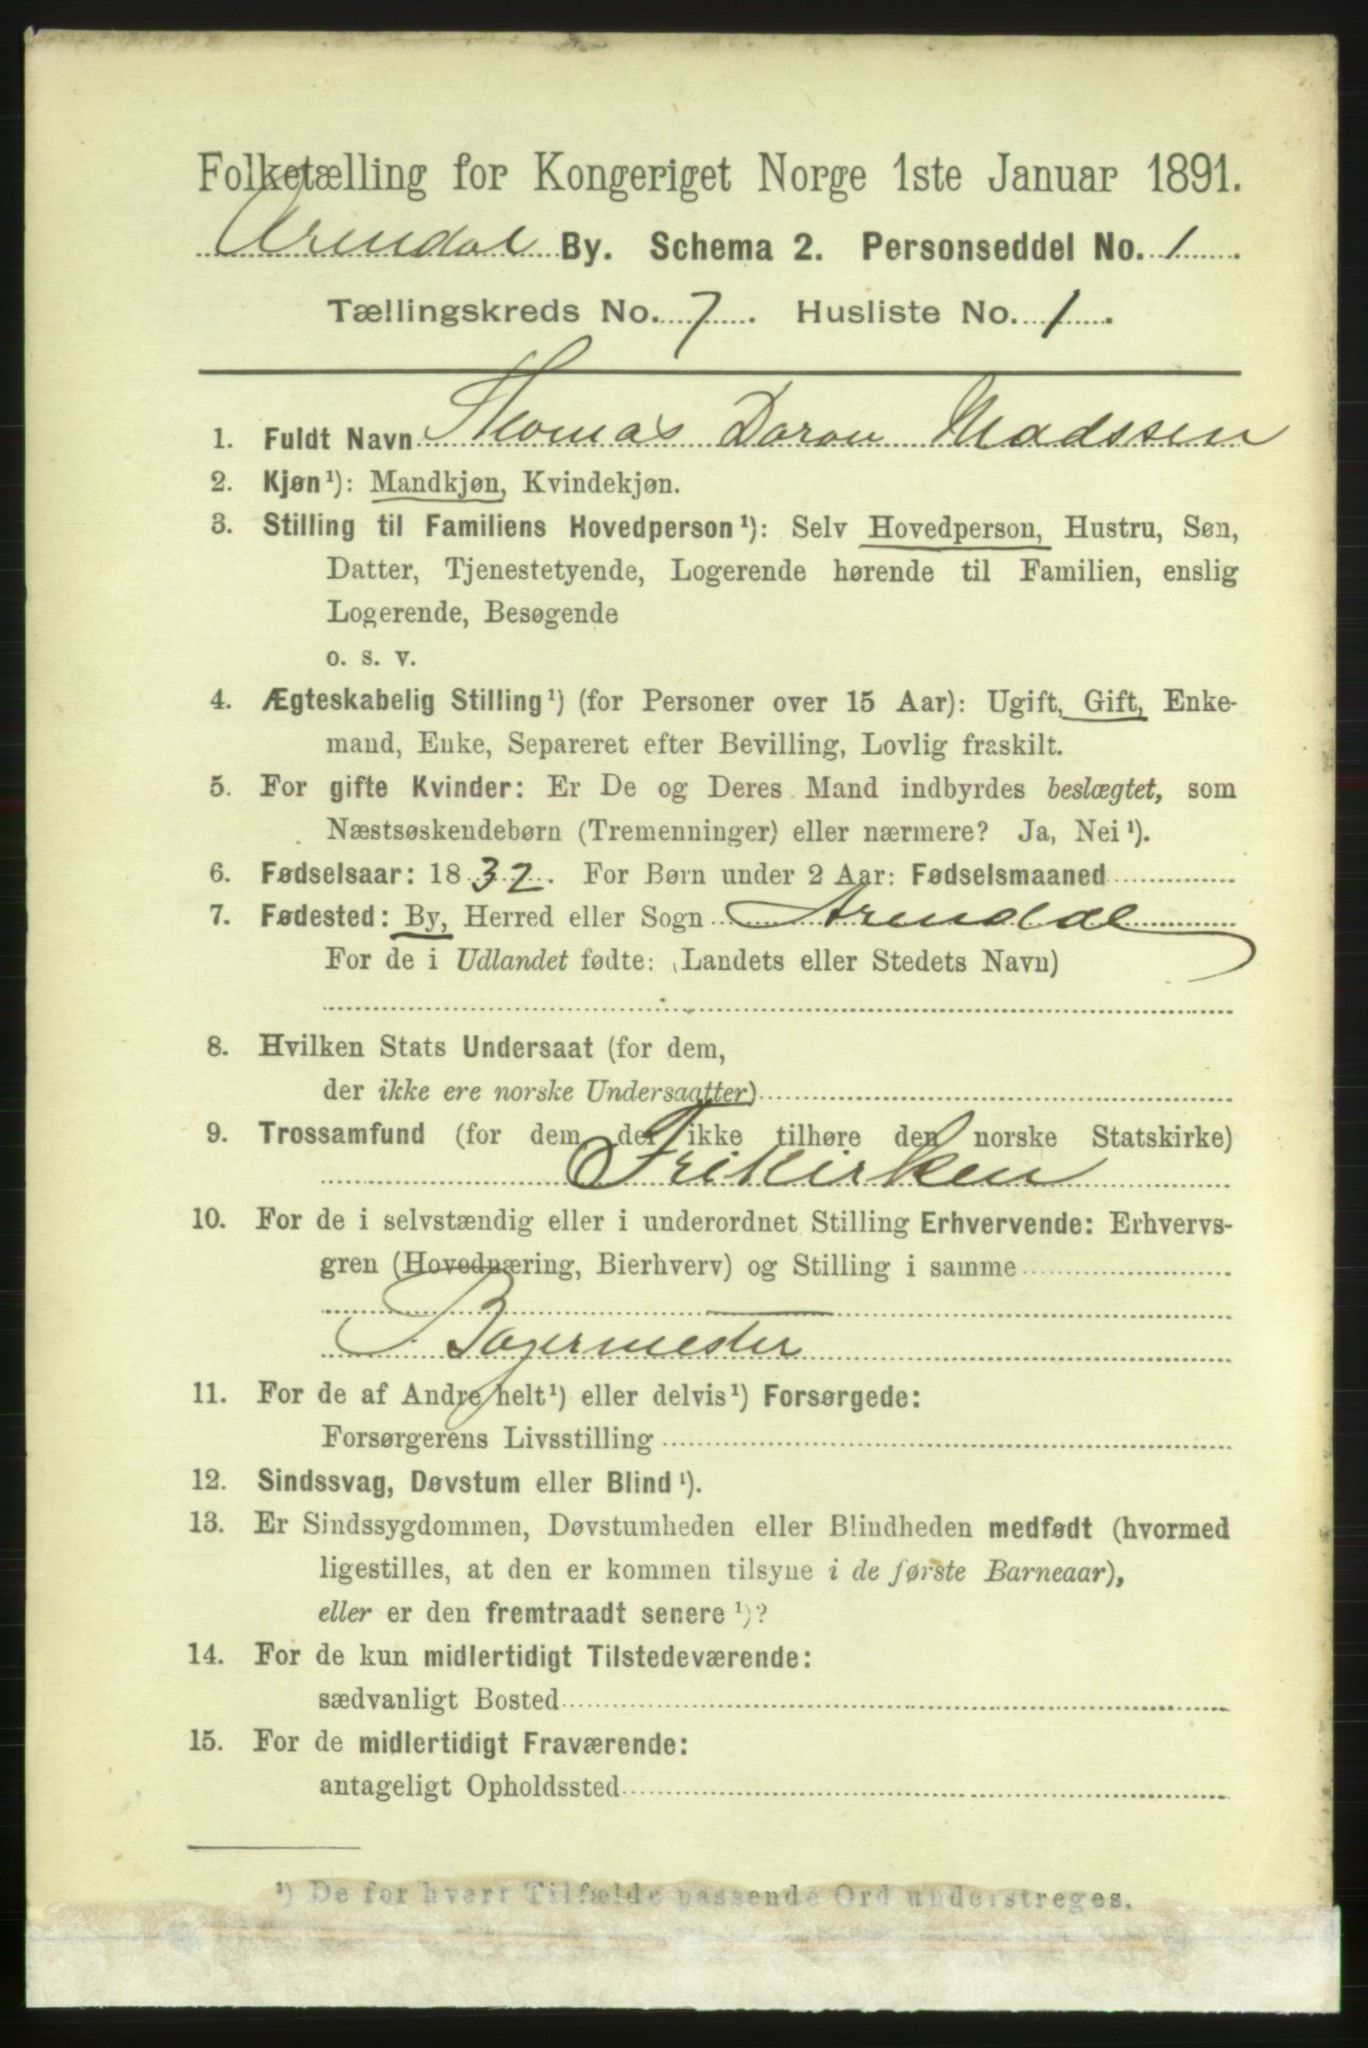 Folketælling for Kongeriget Norge 1ste Januar 1891.
Arendal By. Schema 2. Personseddel No. 1.
Tællingskreds No. 7. Husliste No. 1.
1. Fuldt Navn Thomas Doron Madssen
2. Kjøn¹): Mandkjøn, Kvindekjøn.
3. Stilling til Familiens Hovedperson¹): Selv Hovedperson, Hustru, Søn,
Datter, Tjenestetyende, Logerende hørende til Familien, enslig
Logerende, Besøgende
o. s. v.
4. Ægteskabelig Stilling¹) (for Personer over 15 Aar): Ugift, Gift, Enke-
mand, Enke, Separeret efter Bevilling, Lovlig fraskilt.
5. For gifte Kvinder: Er De og Deres Mand indbyrdes beslægtet, som
Næstsøskendebørn (Tremenninger) eller nærmere? Ja, Nei¹).
6. Fødselsaar: 1832. For Børn under 2 Aar: Fødselsmaaned
7. Fødested: By, Herred eller Sogn Arendal
For de i Udlandet fødte: (Landets eller Stedets Navn)
8. Hvilken Stats Undersaat (for dem,
der ikke ere norske Undersaatter)
9. Trossamfund (for dem der ikke tilhøre den norske Statskirke)
Frikirken
10. For de i selvstændig eller i underordnet Stilling Erhvervende: Erhvervs-
gren (Hovednæring, Bierhverv) og Stilling i samme
Bagermester
11. For de af Andre helt¹) eller delvis¹) Forsørgede:
Forsørgerens Livsstilling
12. Sindssvag, Døvstum eller Blind¹).
13. Er Sindssygdommen, Døvstumheden eller Blindheden medfødt (hvormed
ligestilles, at den er kommen tilsyne i de første Barneaar),
eller er den fremtraadt senere¹)?
14. For de kun midlertidigt Tilstedeværende:
sædvanligt Bosted
15. For de midlertidigt Fraværende:
antageligt Opholdssted
¹) De for hvert Tilfælde passende Ord understreges.